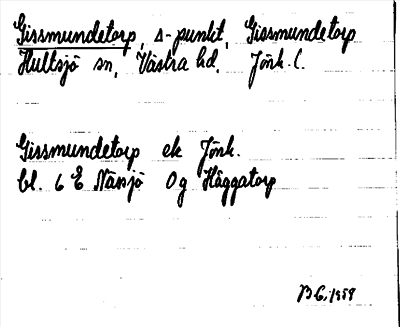 Gissmundetorp, Δ-punkt, Gissmundetorp
Hultsjö sn, Västra hd, Jönk. l.
Gissmundetorp ek Jönk.
bl. 6 E Nässjö Og Häggatorp
B G. 1959